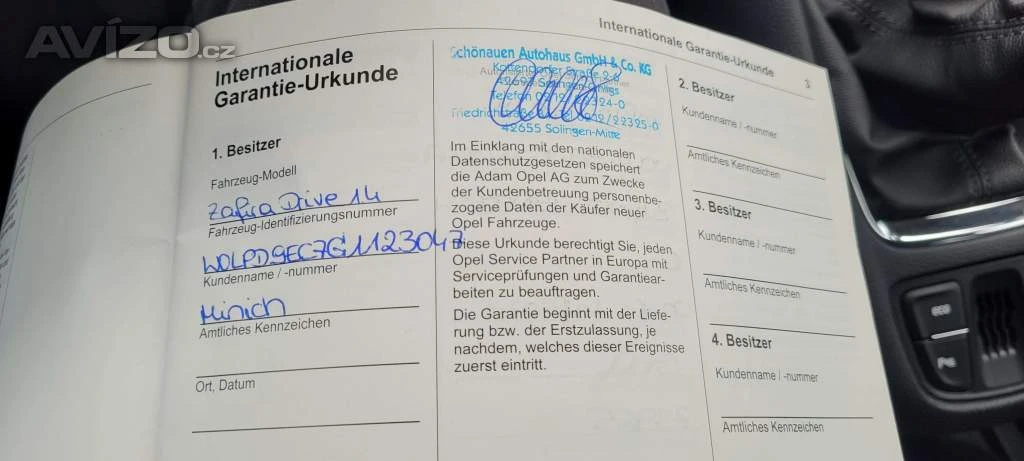 AVÍZO.cz
Internationale Garantie-Urkunde
3
Internationale
Garantie-Urkunde
1. Besitzer
Fahrzeug-Modell
Zafira Drive 1.4
Fahrzeug-Identifizierungsnummer
W0LPD9EC7G1123047
Kundenname / -nummer
Minich
Amtliches Kennzeichen
Ort, Datum
Schönauen Autohaus GmbH & Co. KG
42655 Solingen-Mitte
Im Einklang mit den nationalen
Datenschutzgesetzen speichert
die Adam Opel AG zum Zwecke
der Kundenbetreuung personenbe-
zogene Daten der Käufer neuer
Opel Fahrzeuge.
Diese Urkunde berechtigt Sie, jeden
Opel Service Partner in Europa mit
Serviceprüfungen und Garantiear-
beiten zu beauftragen.
Die Garantie beginnt mit der Liefe-
rung bzw. der Erstzulassung, je
nachdem, welches dieser Ereignisse
zuerst eintritt.
2. Besitzer
Kundenname / -nummer
Amtliches Kennzeichen
3. Besitzer
Kundenname / -nummer
Amtliches Kennzeichen
4. Besitzer
Kundenname / -nummer
Amtliches Kennzeichen
eco